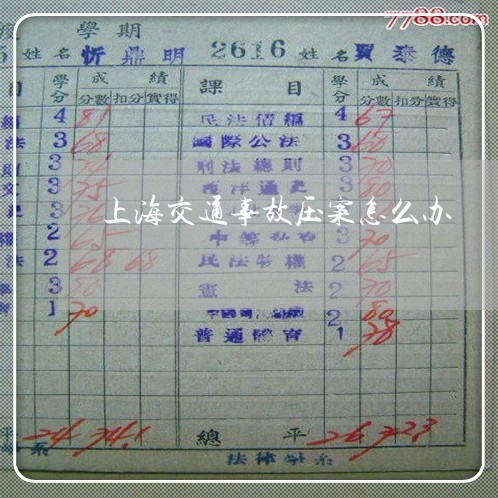 7788.com
學期
姓名 忻鼎明 2616 姓名 賈泰德
目 學分 成績 課目 學分 成績
分數 扣分 實得 分數 扣分 實得
4 81 民法債編 4 67
法 3 68 國際公法 3 60
3 刑法總則 3 70
3 75 西洋通史 3 80
上海交通事故压案怎么办
2 65 3 70
法 2 68 68 民法物權 2 65
3 80 憲法 2 70
1 70 2 80
普通體育 1 78
24 74.1 總平 26 72.3
系 法律學系